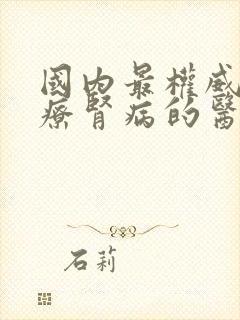 國內最權威
療腎病的醫
石莉